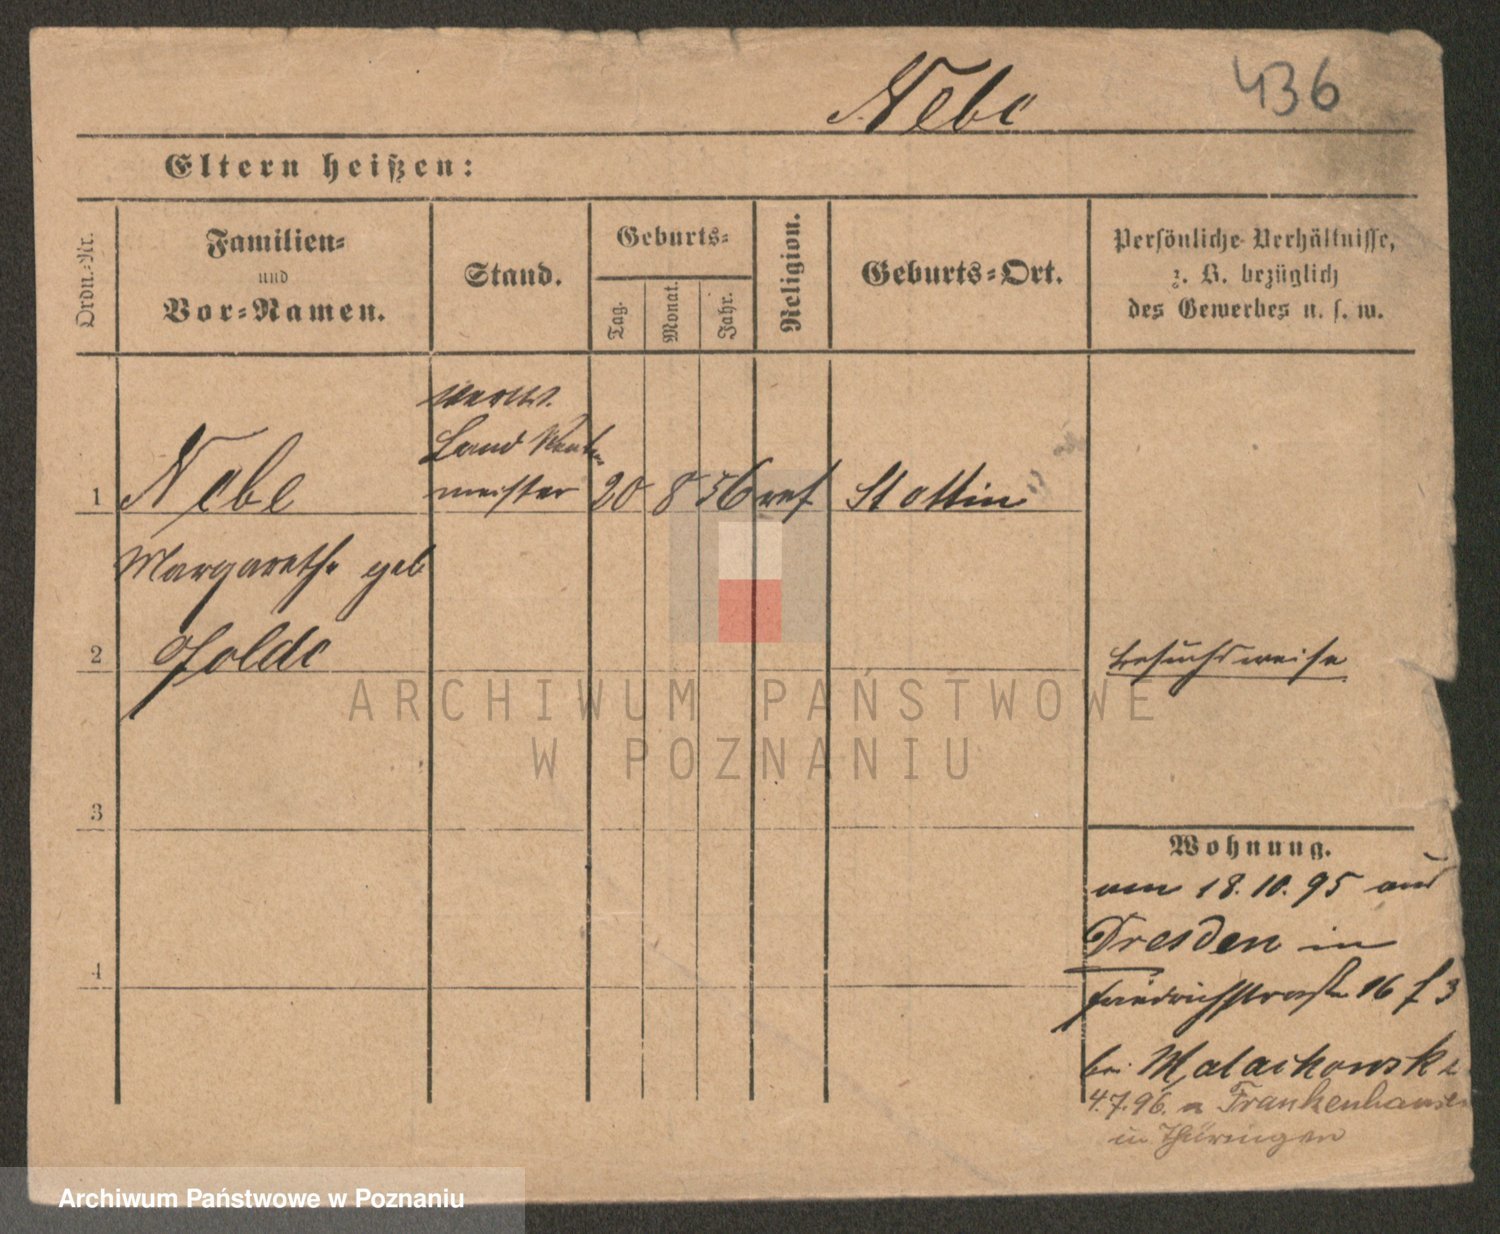 Nebe
436
Eltern heißen:
Ordn.-Nr.
Familien-
und
Vor-Namen.
Stand.
Geburts-
Tag.
Monat.
Jahr.
Religion.
Geburts-Ort.
Persönliche Verhältnisse,
z. B. bezüglich
des Gewerbes u. s. w.
verw.
Land Rent
meister
1 Nebe 20 8 56 ref Stettin
Margarethe geb
2
besuchsweise
ARCHIWUM PAŃSTWOWE
W POZNANIU
3
Wohnung.
am 18.10.95 aus
Dresden in
4
Friedrichstraße 16 f 3
bei Malachowski
4.7.96. n Frankenhausen
in Thüringen
Archiwum Państwowe w Poznaniu